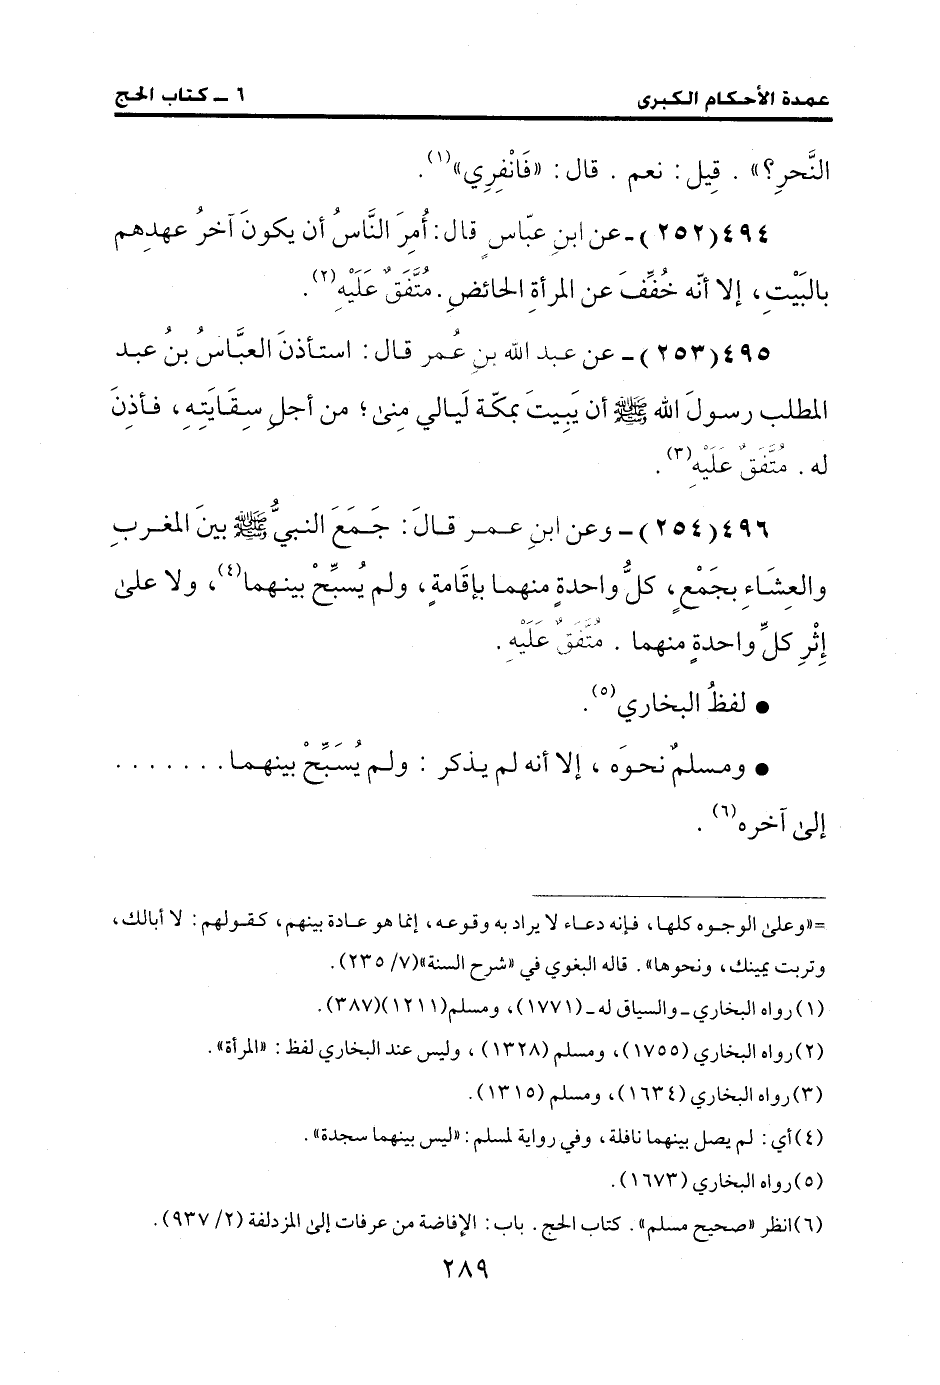 عمدة الأحكام الكبرى ٦ ـ كتاب الحج
النَّحرِ؟» . قِيل: نعم . قال: «فَانْفِرِي»(١).
٤٩٤(٢٥٢)ـ عن ابنِ عبّاسٍ قال: أُمِرَ النَّاسُ أن يكونَ آخرُ عهدِهم
بالبَيْتِ، إلا أنّه خُفِّفَ عن المرأةِ الحائضِ. مُتَّفَقٌ عَلَيْهِ(٢).
٤٩٥(٢٥٣)ـ عن عبد الله بنِ عُمر قال: استأذنَ العبَّاسُ بنُ عبد
المطلب رسولَ الله ﷺ أن يَبِيتَ بمكّة لَيالي مِنىً؛ من أجلِ سِقَايَتِهِ، فأذِنَ
له. مُتَّفَقٌ عَلَيْهِ(٣).
٤٩٦(٢٥٤)ـ وعن ابنِ عمر قالَ: جَمَعَ النبيُّ ﷺ بينَ المغربِ
والعِشَاءِ بجَمْعٍ، كلُّ واحدةٍ منهما بإقَامةٍ، ولم يُسبِّحْ بينهما(٤)، ولا على
إِثْرِ كلِّ واحدةٍ منهما . مُتَّفَقٌ عَلَيْهِ.
● لفظُ البخاري(٥).
● ومسلمٌ نحوَه ، إلا أنه لم يذكر : ولم يُسَبِّحْ بينهما.......
إلى آخره(٦).
=«وعلى الوجوه كلها، فإنه دعاء لا يراد به وقوعه، إنما هو عادة بينهم، كقولهم: لا أبالك،
وتربت يمينك، ونحوها». قاله البغوي في «شرح السنة»(٧/ ٢٣٥).
(١)رواه البخاري ـ والسياق له ـ (١٧٧١)، ومسلم(١٢١١)(٣٨٧).
(٢)رواه البخاري (١٧٥٥)، ومسلم (١٣٢٨) ، وليس عند البخاري لفظ : «المرأة».
(٣)رواه البخاري (١٦٣٤)، ومسلم (١٣١٥).
(٤)أي: لم يصل بينهما نافلة، وفي رواية لمسلم: «ليس بينهما سجدة».
(٥)رواه البخاري (١٦٧٣).
(٦)انظر «صحيح مسلم». كتاب الحج. باب: الإفاضة من عرفات إلى المزدلفة (٢/ ٩٣٧).
٢٨٩